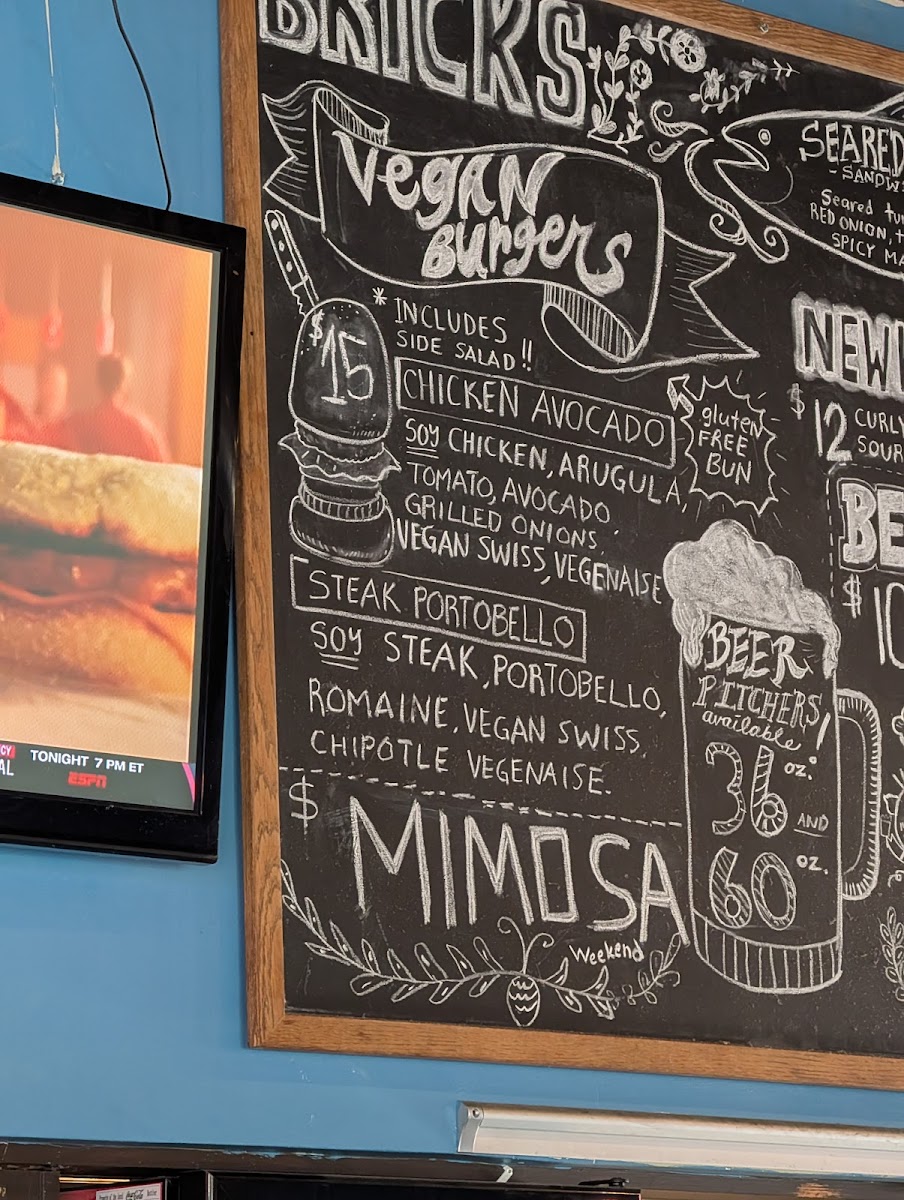 BRICKS
Vegan
Burgers
$15
* INCLUDES
SIDE SALAD!!
CHICKEN AVOCADO
SOY CHICKEN, ARUGULA
TOMATO, AVOCADO,
GRILLED ONIONS,
VEGAN SWISS, VEGENAISE
gluten
FREE
BUN
STEAK PORTOBELLO
SOY STEAK, PORTOBELLO,
ROMAINE, VEGAN SWISS
CHIPOTLE VEGENAISE.
$ MIMOSA
Weekend
BEER
PITCHERS
available!
36 oz.
AND
60 oz.
SEARED
- SANDW
Seared tu
RED ONION, t
SPICY MA
NEW
$12 CURLY
SOUR
BE
$10
TONIGHT 7 PM ET
ESPN
CY
AL